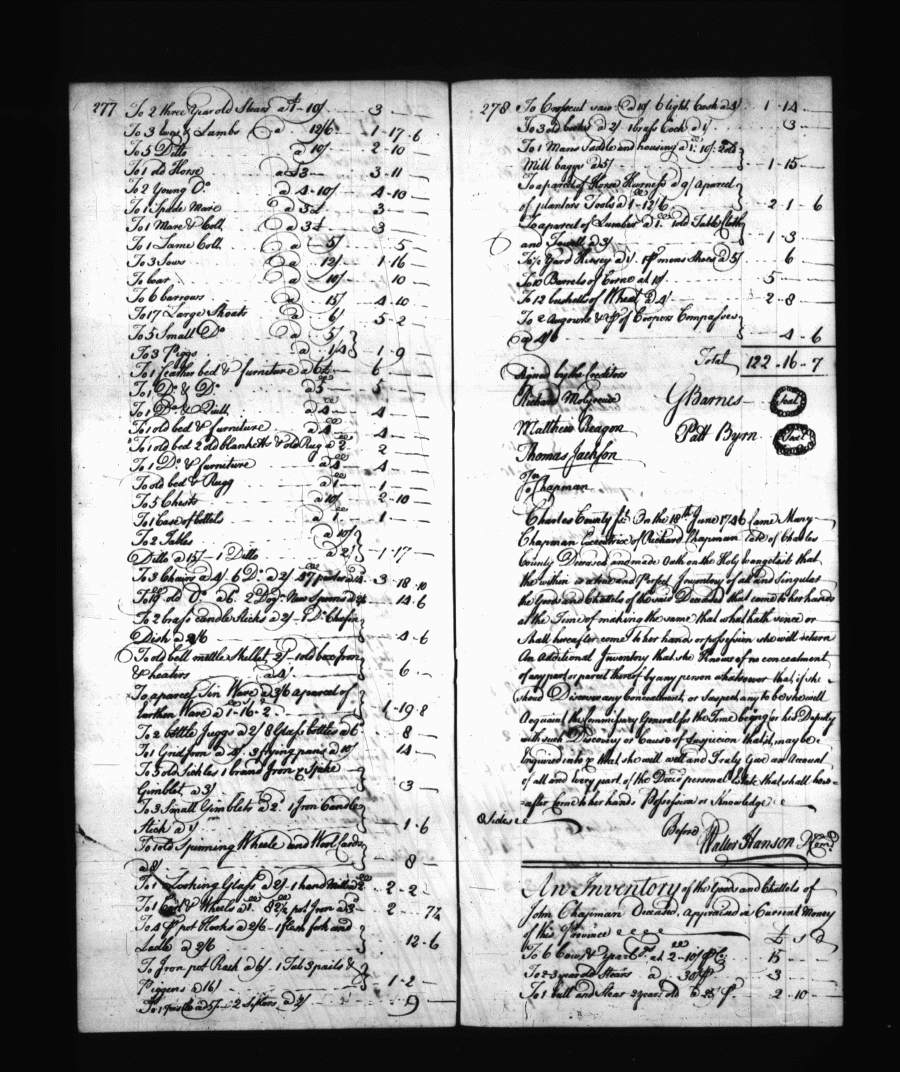 277
To 2 three Year old Steers a 1 - 10/ 3 -
To 3 Ews & Lambs a 12/6 1 - 17 - 6
To 5 Ditto a 10/ 2 - 10
To 1 old Horse a 3 - 3 - 11
To 2 Young Do a 4 - 10/ 4 - 10
To 1 Spade Mare a 3£ 3 -
To 1 Mare & Colt a 3£ 3
To 1 Lame Colt a 5/ 5
To 3 Sows a 12/ 1 - 16
To boar a 10/ 10
To 6 barrows a 15/ 4 - 10
To 17 Large Shoats a 6/ 5 - 2
To 5 Small Do a 5/
To 3 Piggs a 1/4 1 - 9
To 1 feather bed & furniture a 6£ 6
To 1 Do & Do a 5 5
To 1 Do & Quilt a 4 4
To 1 old bed & furniture a 4 4
To 1 old bed 2 old blanketts & old Rug a 2 2
To 1 Do & furniture a 4 4
To old bed & Rugg a 1 1
To 5 Chests a 10/ 2 - 10
To 1 Case of bottels a 1 1
To 2 Tables a 10/
Ditto a 15/ - 1 Ditto a 2/ 1 - 17
To 3 Chairs a 4/. 6 Do a 2/ 47 pewter a 3 - 18 - 10
To 19 old Do a 6. 2 Doz. New Spoons a 14 - 6
To 2 brass Candle Sticks a 2/ - 1 Do Chafin
Dish a 2/6 4 - 6
To old bell mettle Skillet 2/ - 1 old box Iron
& heaters a 4/ 6
To a parcel Tin Ware a 3/6 a parcel of
Earthen Ware a 1 - 16 - 2 1 - 19 - 8
To 2 bottle Juggs a 2/ 8 Glass bottles a 6 8
To 1 Grid Iron a 4/ 3 frying pans a 10/ 14
To 5 old Sickles 1 brand Iron & Spike
Gimblet a 3/ 3
To 3 Small Gimblets a 2. 1 Iron Candle
Stick a 1/ 1 - 6
To 1 old Spinning Wheele and Wool Cards
a 8/ 8
To 1 Looking Glass a 2/ - 1 hand Mill a 2 2 - 2
To 1 Cart & Wheels a 1. 82½ pot Iron a 3 2 - 7¼
To 4 pr pot Hooks a 2/6 - 1 flesh fork and
Ladle a 2/6 12 - 6
To Iron pot Rack a 6/ . 1 Tub 3 pails &
Piggens a 16/ 1 - 2
To 1 a 5/ - 2 Sifters a 2/ 9
278 To Crosscut saw a 10/ 6 light Cash a 4/ 1 - 14
To 3 old books a 2/ 1 brass Cock a 1/ 3
To 1 Mans Saddle and housing a 1. 10/. 2 old
Mill baggs a 5/ 1 - 15
To a parcel of Horse Harness a 9/ a parcel
of planters Tools a 1 - 12/6 2 - 1 - 6
To a parcel of Lumber a 1. 1 old Table Cloth
and Towell a 3/ 1 - 3
To ½ Yard Kersey a 1/. 1 pr mens Shoes a 5/ 6
To 10 Barrels of Corne at 10/ 5
To 12 bushells of Wheat a 4/ 2 - 8
To 2 Augours & pr of Coopers Compasses
a 4/6 4 - 6
Total 122 - 16 - 7
Signed by the Creditors
Richard G Barnes Seal
Matthew Reagon Patt Byrn Seal
Thomas Jackson
Jno Chapman
Charles County ss. On the 18th June 1746 Came Mary
Chapman Executrix of Richard Chapman Late of Charles
County Deceased and made Oath on the Holy Evangelists that
the within is a true and Perfect Inventory of all and Singular
the Goods and Chattels of the said Deceased that came to her hands
at the Time of making the same that what hath since or
shall hereafter come to her hand or possession she will return
An Additional Inventory that she Knows of no concealment
of any part or parcel thereof by any person whatsoever that if she
shoud Discover any Concealment, or Suspect any to be she will
Acquaint the Commissary General for the Time being or his Deputy
with such Discovery or Cause of Suspicion that it may be
Enquired into & that she will well and Truly Give an Account
of all and Every part of the Deced personal Estate that shall here=
=after Come to her hands Possession or Knowledge
Before
Walter Hanson D Comry
An Inventory of the Goods and Chattels of
John Chapman Deceased, Appraised in Current Money
of this Province £ s d
To 6 Cows & Years at 2 - 10/ 15
To 2 3 year old Stears a 30/ pr 3
To 1 bull and Stear 2 years old a 25/ pr 2 - 10